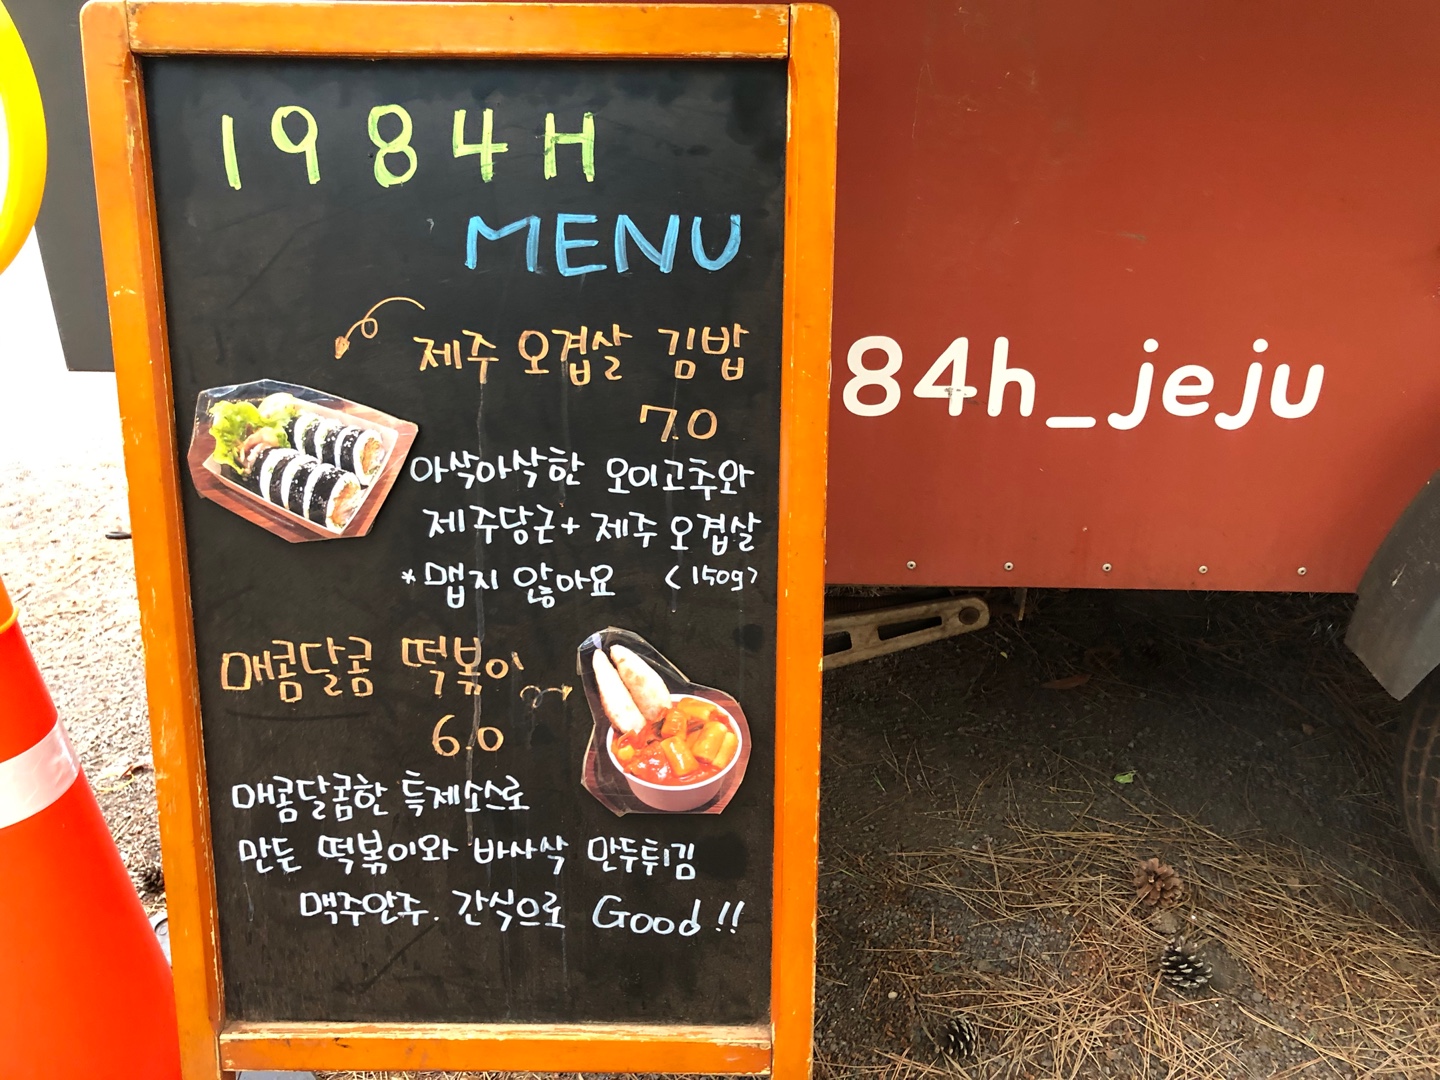 1984H
MENU
제주 오겹살 김밥
7.0
아삭아삭한 오이고추와
제주당근+ 제주 오겹살
*맵지 않아요 (150g)
매콤달콤 떡볶이
6.0
매콤달콤한 특제소스로
만든 떡볶이와 바사삭 만두튀김
맥주안주. 간식으로 Good!!
84h_jeju